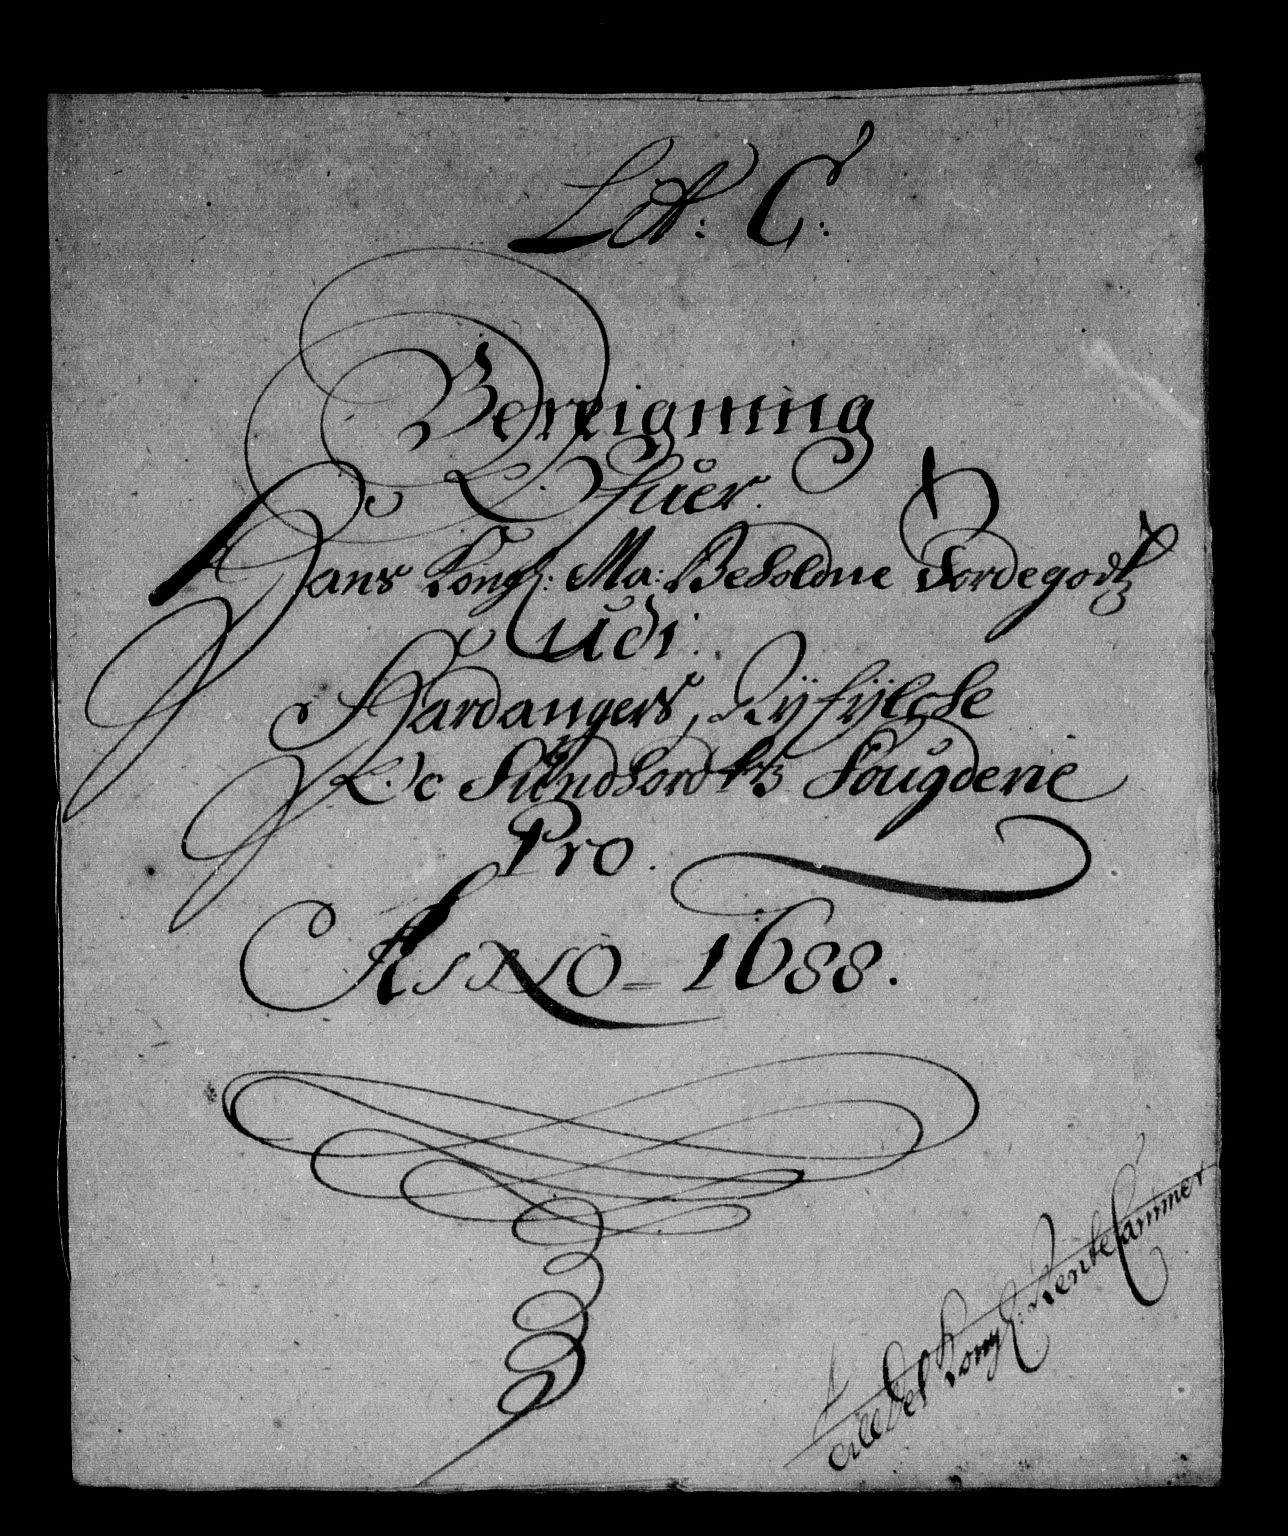 Litt: C:
Bereigning
Ofuer
Hans Kongl: Ma: Beholdne Jordegodtz
Udi
Hardangers, Ryfylche
Oc Sundhordlehns Fougderie
Pro.
Anno = 1688.
Till Det Kongl: Rente Cammer